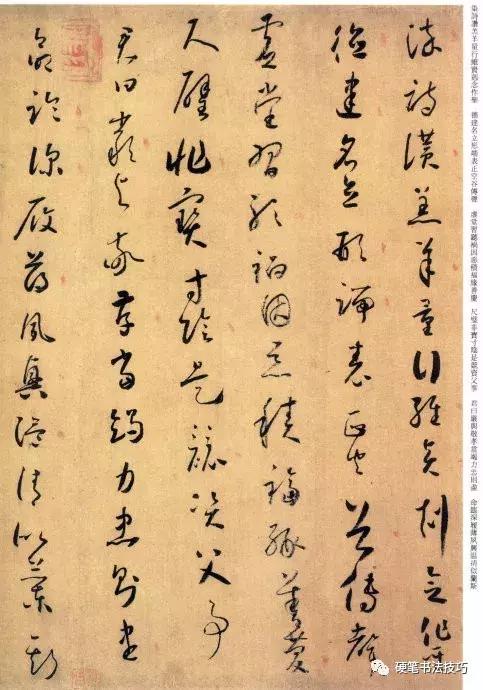 染詩讚羔羊景行維賢剋念作聖　德建名立形端表正空谷傳聲　虛堂習聽禍因惡積福緣善慶　尺璧非寶寸陰是競資父事　君曰嚴與敬孝當竭力忠則盡　命臨深履薄夙興溫清似蘭斯
染詩讚羔羊景行維賢剋念作聖
德建名立形端表正空谷傳聲
虛堂習聽禍因惡積福緣善慶
尺璧非寶寸陰是競資父事
君曰嚴與敬孝當竭力忠則盡
命臨深履薄夙興溫清似蘭斯
硬笔书法技巧